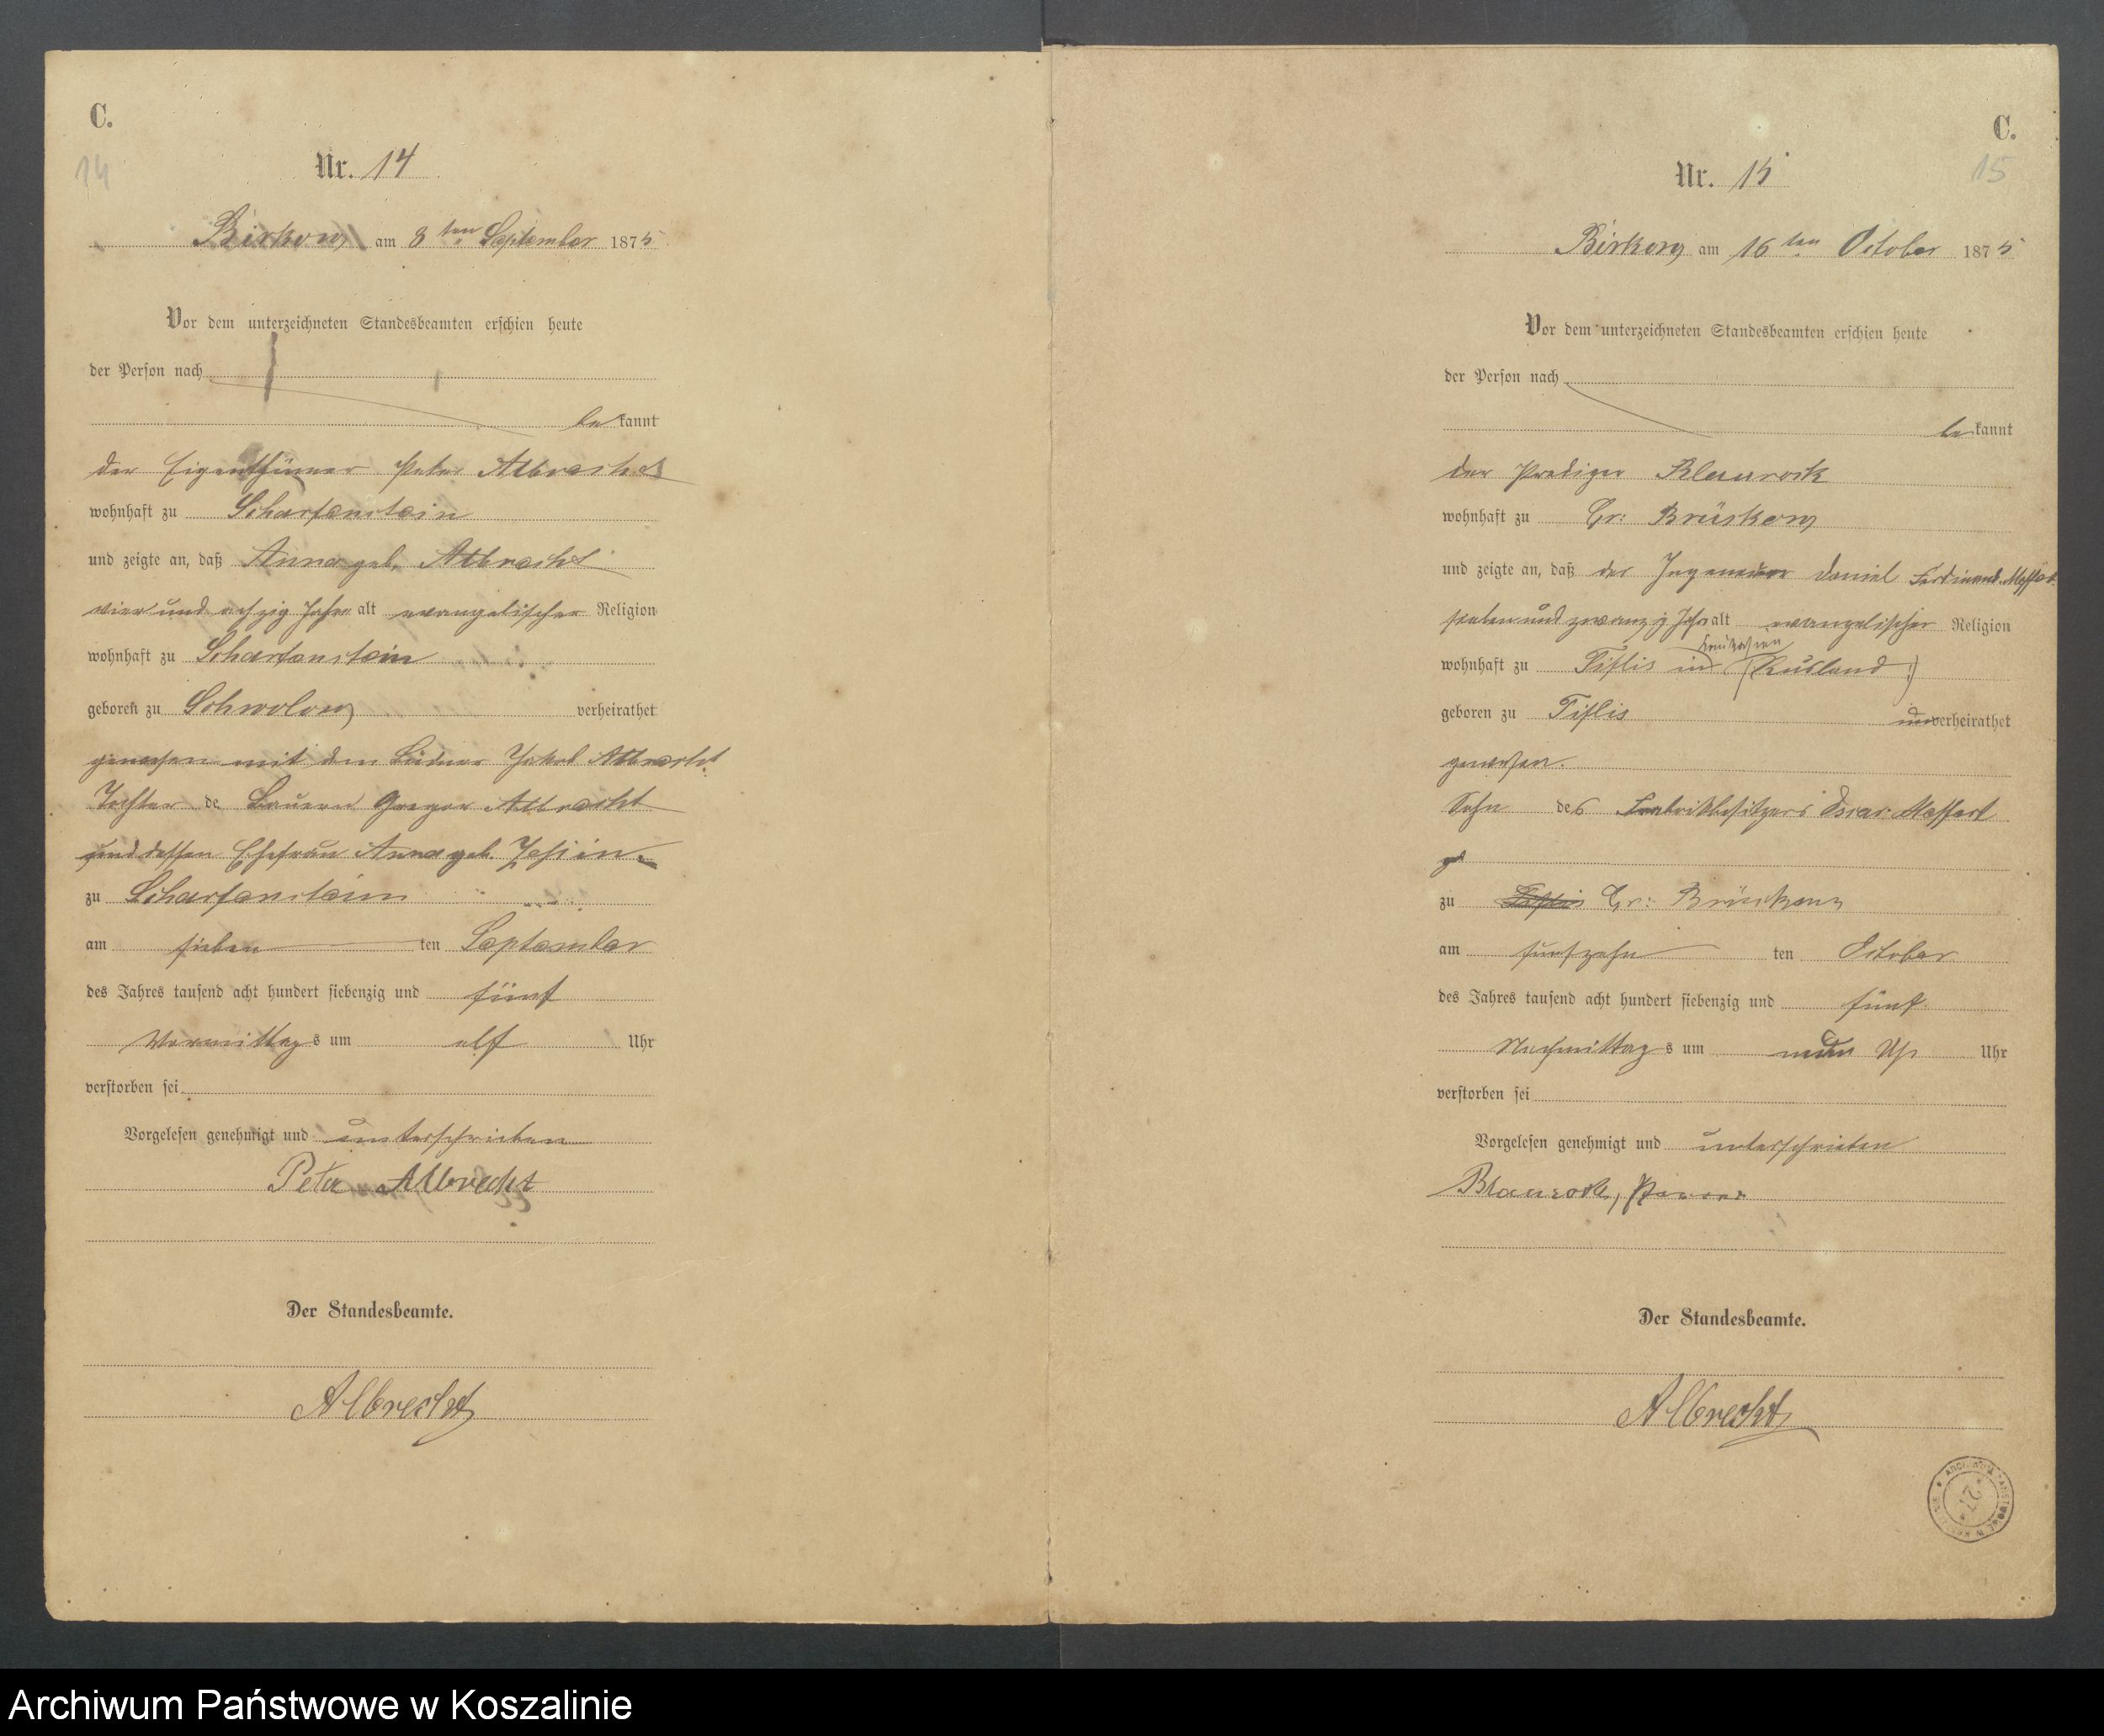 C.
14
Nr. 14
Birkow am 8ten September 1875
Vor dem unterzeichneten Standesbeamten erschien heute
der Person nach
bekannt
der Eigenthümer Peter Albrecht
wohnhaft zu Scharfenstein
und zeigte an, daß Anna geb. Albrecht
vier und achzig Jahre alt evangelischer Religion
wohnhaft zu Scharfenstein
geboren zu Schwolow verheirathet
gewesen mit dem Büdner Jakob Albrecht
Tochter de Bauern Gregor Albrecht
und dessen Ehefrau Anna geb.
zu Scharfenstein
am sieben ten September
des Jahres tausend acht hundert siebenzig und fünf
Vormittags um elf Uhr
verstorben sei
Vorgelesen genehmigt und unterschrieben
Peter Albrecht
Der Standesbeamte.
Albrecht
C.
15
Nr. 15
Birkow am 16ten October 1875
Vor dem unterzeichneten Standesbeamten erschien heute
der Person nach
bekannt
der Prediger Blaurock
wohnhaft zu Gr: Brüskow
und zeigte an, daß der Ingeneuer Daniel Ferdinand Meffert
sieben und zwanzig Jahr alt evangelischer Religion
Kaukasien
wohnhaft zu Tiflis in (Rusland:)
geboren zu Tiflis unverheirathet
gewesen.
Sohn des Fabrikbesitzers Oscar Meffert
zu Tiflis Gr: Brüskow
am funfzehn ten October
des Jahres tausend acht hundert siebenzig und fünf
Nachmittags um neun Uhr Uhr
verstorben sei
Vorgelesen genehmigt und unterschrieben
Blaurock, Pfarrer
Der Standesbeamte.
Albrecht
27
Archiwum Państwowe w Koszalinie